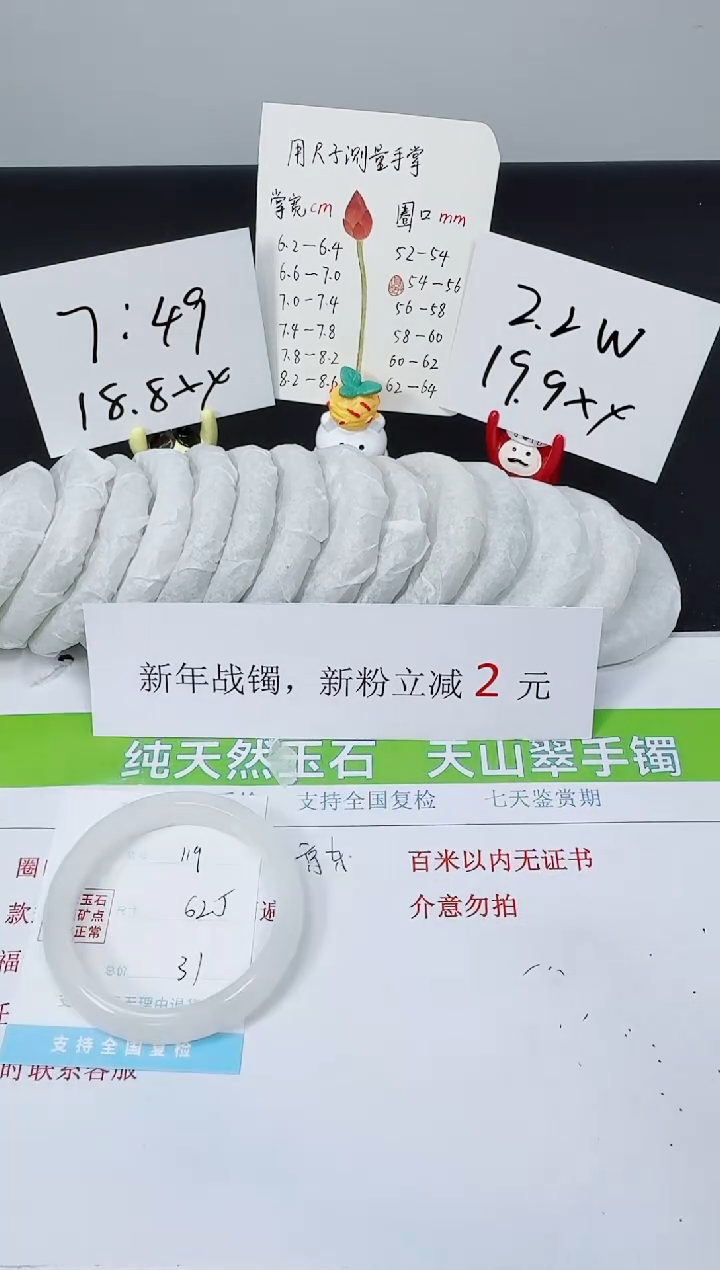 用尺子测量手掌
掌宽cm 圈口mm
6.2-6.4 52-54
6.6-7.0 54-56
7.0-7.4 56-58
7.4-7.8 58-60
7.8-8.2 60-62
8.2-8.6 62-64
7:49
18.8xx
2.2W
19.9xx
新年战镯，新粉立减2元
纯天然玉石 天山翠手镯
支持全国复检 七天鉴赏期
圈
119
百米以内无证书
款
玉石
矿点
正常
尺寸
62J
介意勿拍
福
总价
31
支
无理由退
支持全国复检
时联系客服